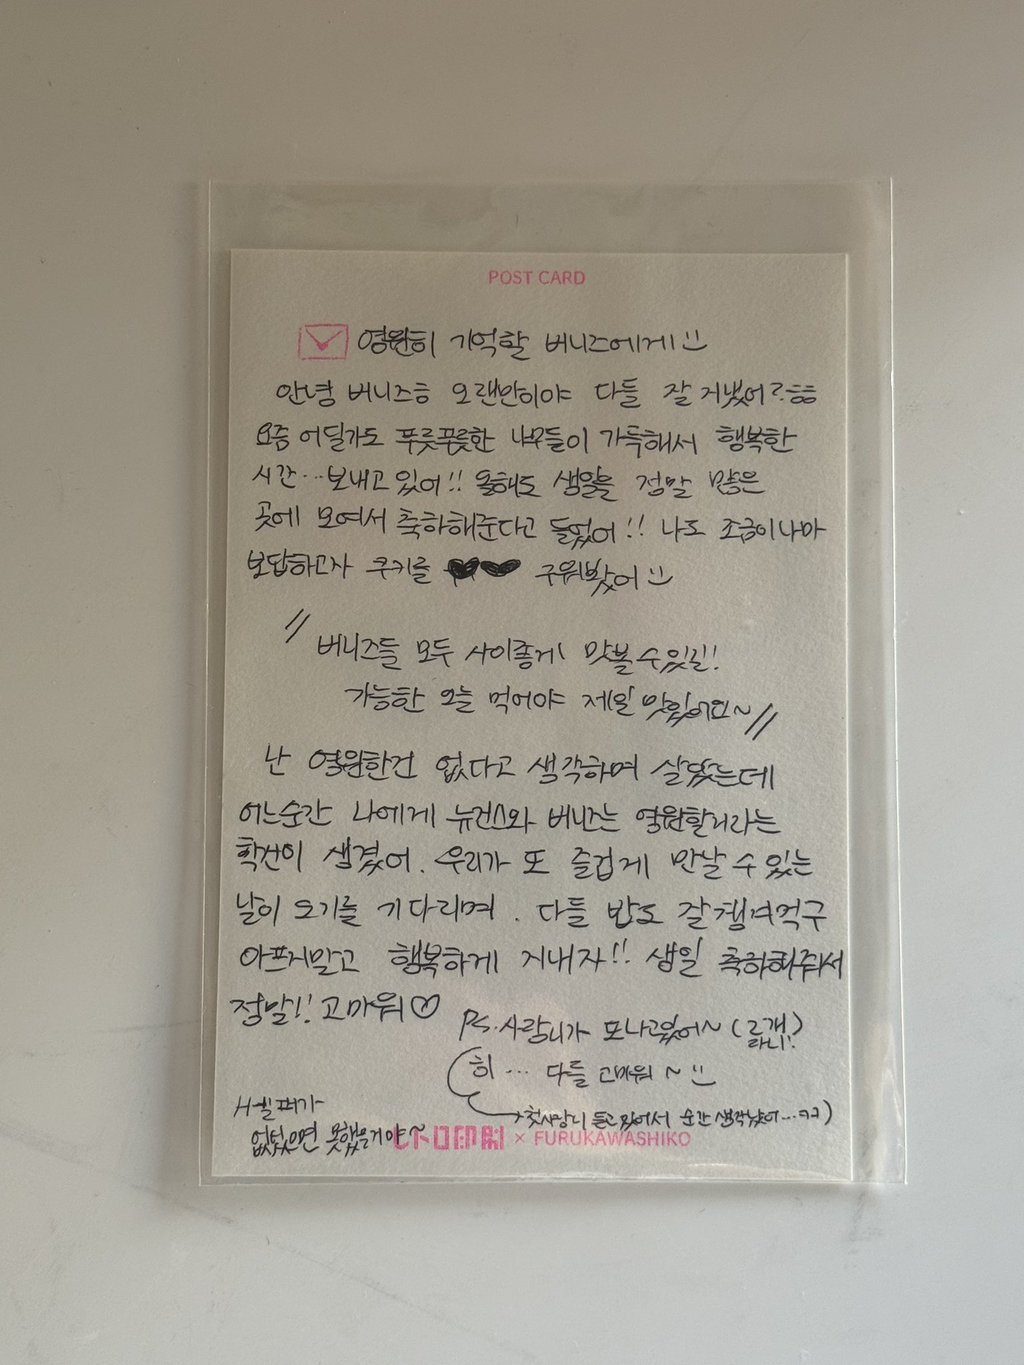 POST CARD
영원히 기억할 버니즈에게
안녕 버니즈ㅎ 오랜만이야 다들 잘 지냈어? ㅎㅎ
요즘 어딜가도 푸릇푸릇한 나무들이 가득해서 행복한
시간… 보내고 있어!! 올해도 생일을 정말 많은
곳에 모여서 축하해준다고 들었어!! 나도 조금이나마
보답하고자 쿠키를 구워봤어
"
버니즈들 모두 사이좋게 맛볼 수 있길!
가능한 오늘 먹어야 제일 맛있어요~ "
난 영원한건 없다고 생각하며 살았는데
어느순간 나에게 뉴진스와 버니즈는 영원할거라는
확신이 생겼어. 우리가 또 즐겁게 만날 수 있는
날이 오기를 기다리며. 다들 밥도 잘챙겨먹구
아프지말고 행복하게 지내자!! 생일 축하해줘서
정말!! 고마워♡
PS. 사랑니가 또 나고있어~ (
라니!)
히… 다들 고마워~
→첫사랑니 듣고 있어서 순간 생각났어…ㅋㅋ)
헬퍼가
없었으면 못했을거야~
レトロ印刷 × FURUKAWASHIKO